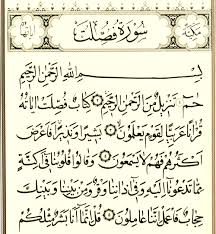 سُورَةُ فُصِّلَتْ
بِسْمِ اللهِ الرَّحْمٰنِ الرَّحِيمِ
حمٓ ۝ تَنْزِيلٌ مِنَ الرَّحْمٰنِ الرَّحِيمِ ۝ كِتَابٌ فُصِّلَتْ اٰيَاتُهُ
قُرْاٰنًا عَرَبِيًّا لِقَوْمٍ يَعْلَمُونَ ۝ بَشِيرًا وَنَذِيرًا فَاَعْرَضَ
اَكْثَرُهُمْ فَهُمْ لَا يَسْمَعُونَ ۝ وَقَالُوا قُلُوبُنَا فِي اَكِنَّةٍ
مِمَّا تَدْعُونَا اِلَيْهِ وَفِي اٰذَانِنَا وَقْرٌ وَمِنْ بَيْنِنَا وَبَيْنِكَ
حِجَابٌ فَاعْمَلْ اِنَّنَا عَامِلُونَ ۝ قُلْ اِنَّمَا اَنَا بَشَرٌ مِثْلُكُمْ